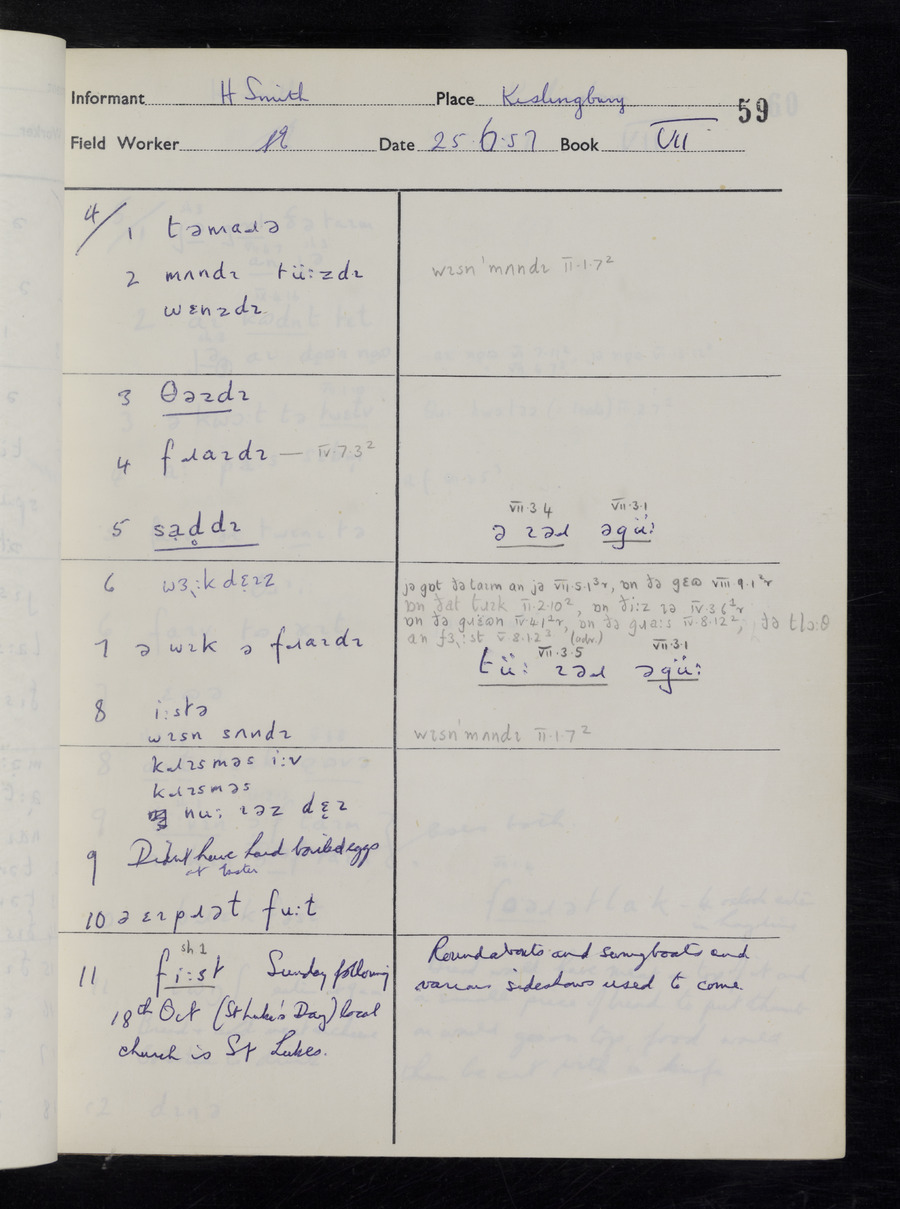 Informant H Smith Place Kislingbury 59
Field Worker Date 25.6.57 Book VII
4/ 1 təmaɹə
2 mʌndɪ tü:zdɪ
wɛnzdɪ
wɪsn'mʌndɪ II.1.7²
3 θəzdɪ
4 fɹaɪdɪ — IV.7.3²
5 sạḍdɪ
VII.3.4 VII.3.1
ə ɪəɹ əgü:
6 wɜ:k dɛ̣ɪz
jə gɒt ðə taɪm an jə VII.5.1³r, ɒn ðə gɛʊ VIII 9.1²r
ɒn ðat tɹɪk II.2.10², ɒn ði:z ɪə IV.3.6¹r
ɒn ðə gɹɛʊn IV.4.1²r, ɒn ðə gɹa:s IV.8.12², ðə tlɔ:θ
an fɜ:st V.8.12³ (adv.)
7 ə wɪk ə fɹaɪdɪ
VII.3.5 VII.3.1
tü: ɪəɹ əgü:
8 i:stə
wɪsn sʌndɪ
wɪsn'mʌndɪ II.1.7²
kɹɪsməs i:v
kɹɪsməs
nu: ɪəz dɛ̣ɪ
9 Didn't have hard boiled eggs
at Easter
10 ə ɛɪpɹət fu:t
sh 1
11 fi:st Sunday following
18th Oct (St Luke's Day) local
church is St Lukes.
Roundabouts and swingboats and
various sideshows used to come